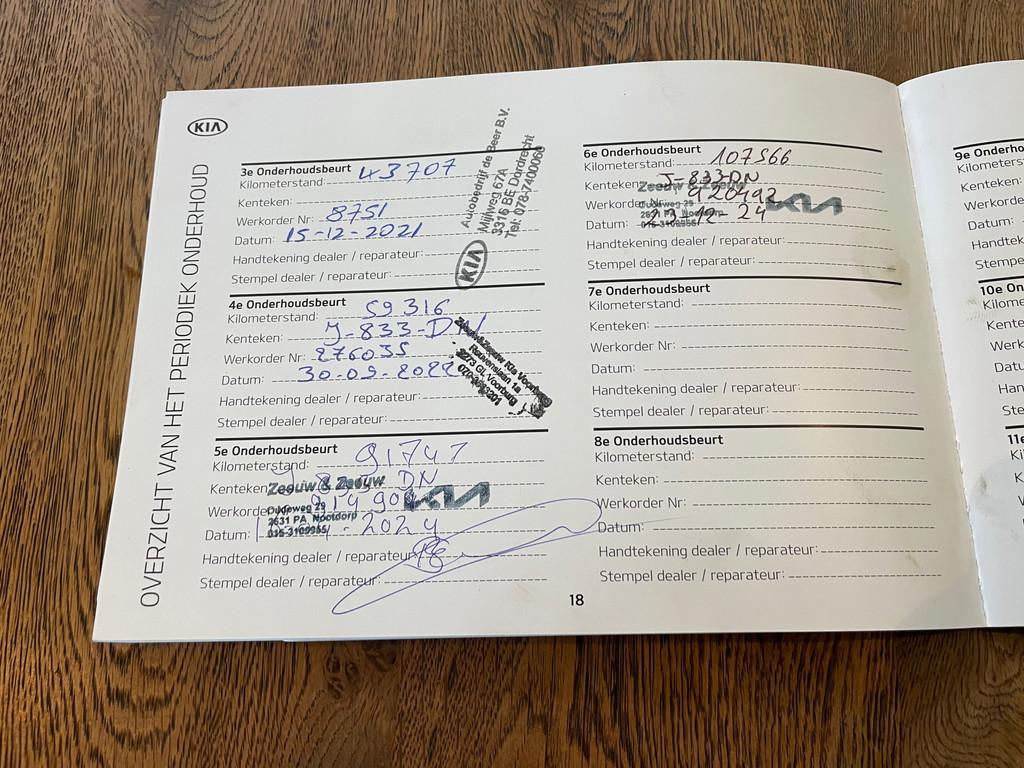 KIA
OVERZICHT VAN HET PERIODIEK ONDERHOUD
3e Onderhoudsbeurt
Kilometerstand: 43707
Kenteken:
Werkorder Nr: 8751
Datum: 15-12-2021
Handtekening dealer / reparateur:
Stempel dealer / reparateur:
Autobedrijf de Beer B.V.
Mijlweg 67A
3316 BE Dordrecht
Tel: 078-7400066
KIA
4e Onderhoudsbeurt
Kilometerstand: 59316
Kenteken: J-833-DN
Werkorder Nr: 276035
Datum: 30-09-2022
Handtekening dealer / reparateur:
Stempel dealer / reparateur:
Zeeuw & Zeeuw Kia Voorburg
2273 GL Voorburg
5e Onderhoudsbeurt
Kilometerstand: 91747
Kenteken DN
Zeeuw & Zeeuw
Werkorde
KIA
Oudeweg 29
2631 PA Nootdorp
015-3109955
Datum: 2024
Handtekening dealer / reparateur
Stempel dealer / reparateur:
6e Onderhoudsbeurt
Kilometerstand: 107566
Kenteken J-833-DN
Zeeuw & Zeeuw
Werkorder Nr: 920492
KIA
Oudeweg 29
2631 PA Nootdorp
015-3109955
Datum: 23-12-24
Handtekening dealer / reparateur:
Stempel dealer / reparateur:
7e Onderhoudsbeurt
Kilometerstand:
Kenteken:
Werkorder Nr:
Datum:
Handtekening dealer / reparateur:
Stempel dealer / reparateur:
8e Onderhoudsbeurt
Kilometerstand:
Kenteken:
Werkorder Nr:
Datum:
Handtekening dealer / reparateur:
Stempel dealer / reparateur:
18
9e Onderho
Kilometers
Kenteken:
Werkord
Datum:
Handtek
Stempe
10e On
Kilome
Kente
Werk
Datu
Han
Ste
11e
Ki
K